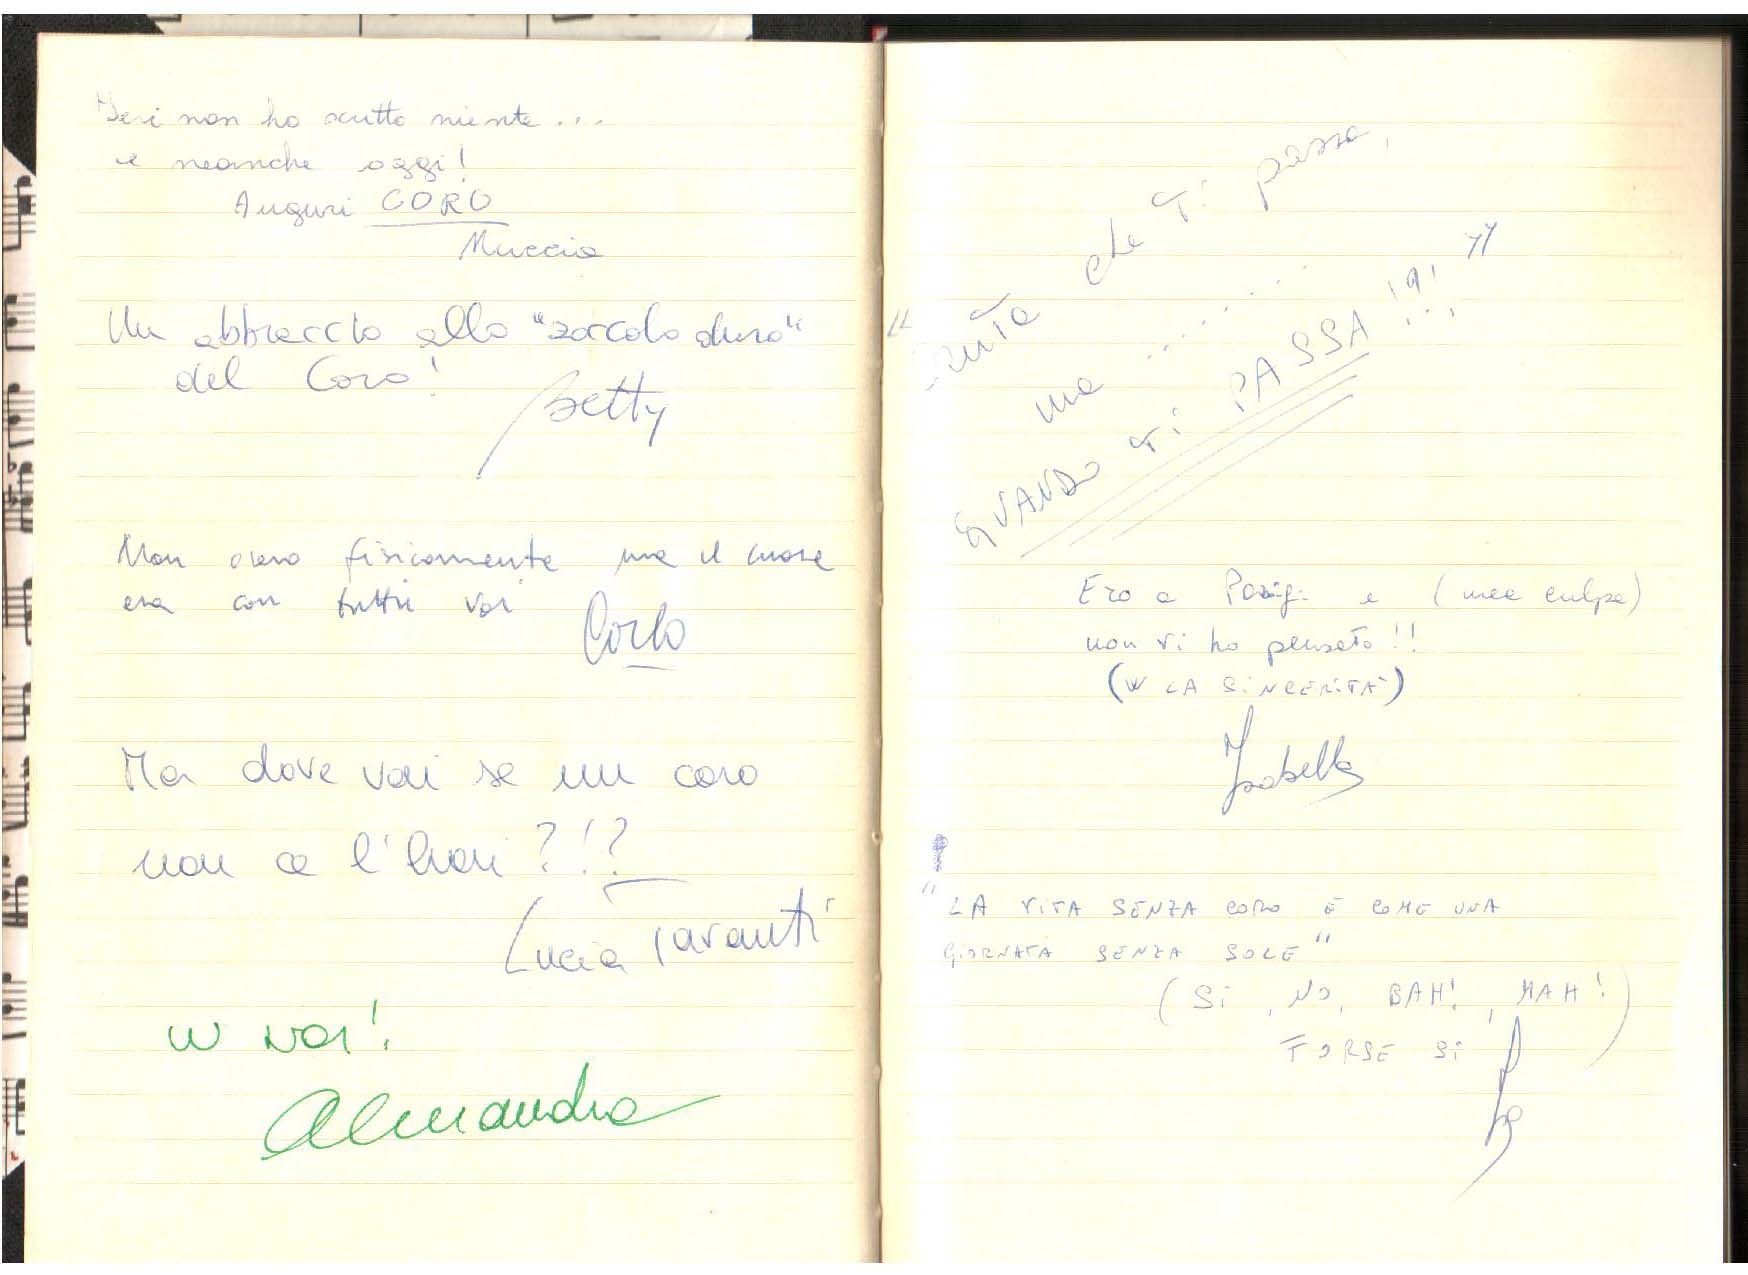 Ieri non ho scritto niente...
e neanche oggi!
Auguri CORO
Muccia
Un abbraccio allo "zoccolo duro"
del Coro!
Betty
Non c'ero fisicamente ma il cuore
era con tutti voi
Carlo
Ma dove vai se un coro
non ce l'hai?!?
Lucia
W voi!
Alessandra
"
che ti passa,
ma ..........
QUANDO Ti PASSA!?!"
Ero a Parigi e (mea culpa)
non vi ho pensato!!
(W LA SiNCERiTA')
Isabella
"LA ViTA SENZA CORO È COME UNA
GiORNATA SENZA SOLE"
(Si, NO, BAH!, MAH!
FORSE Si)